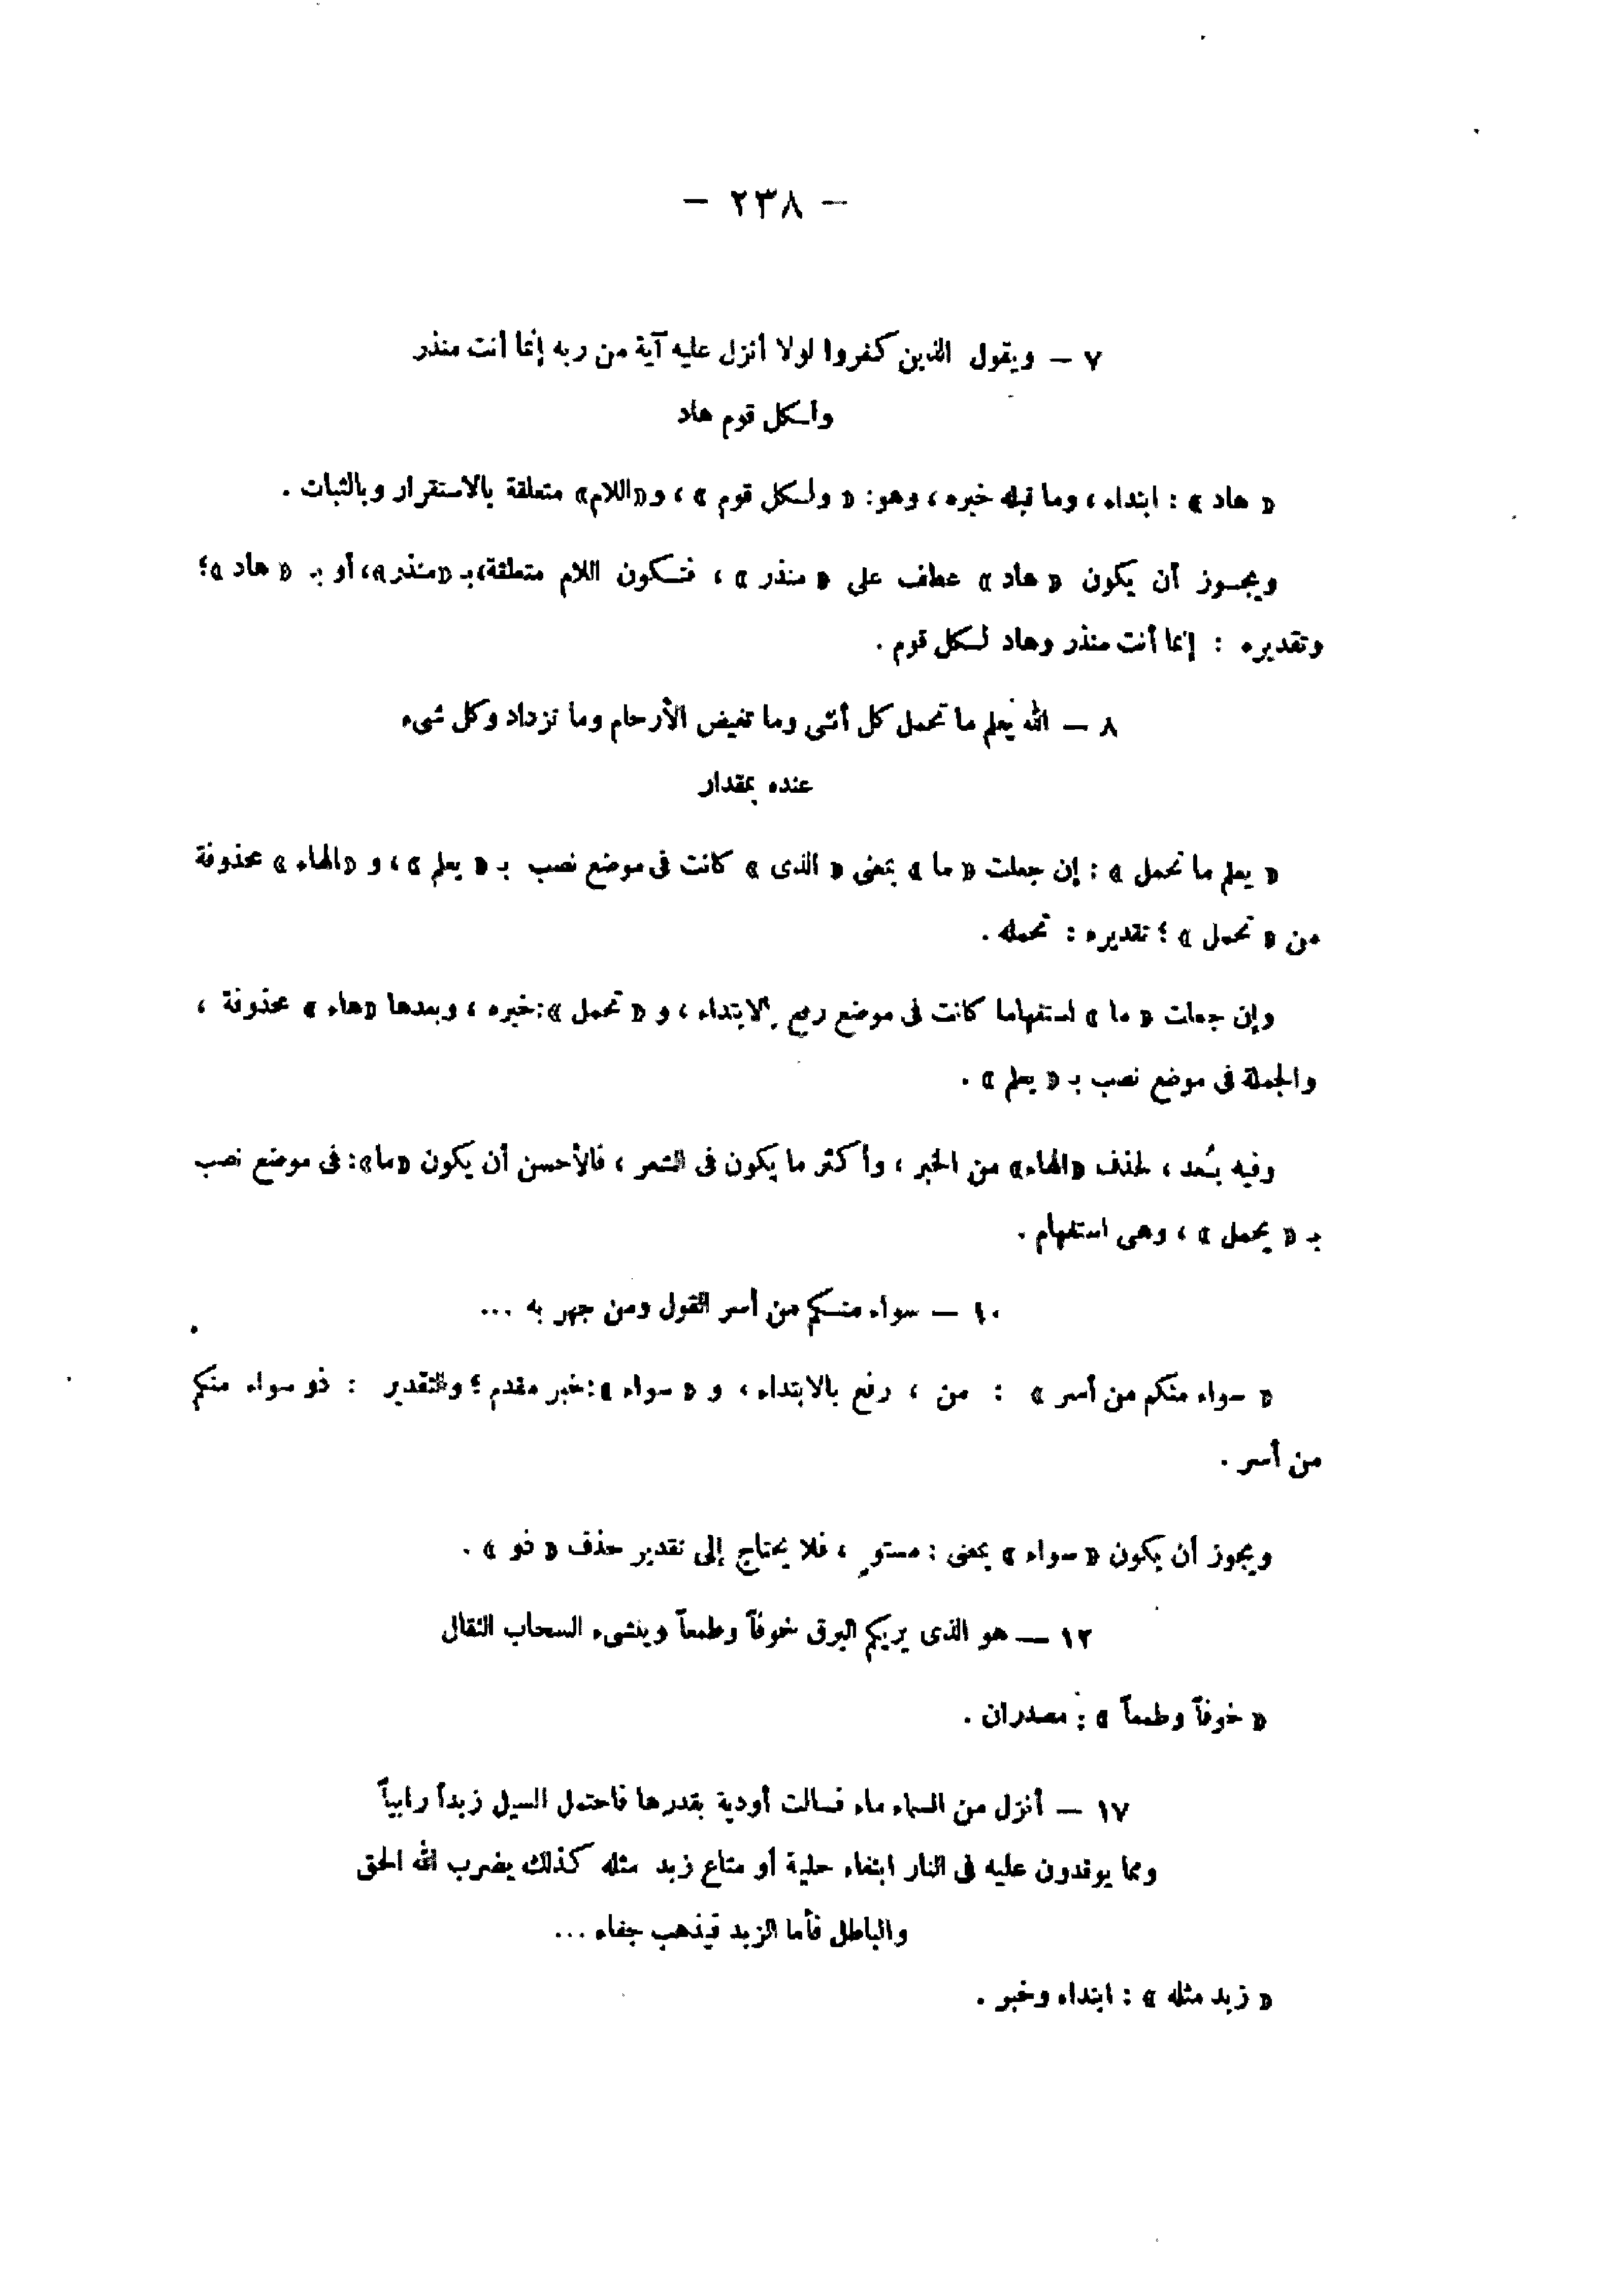 — ٢٣٨ —
٧ — ويقول الذين كفروا لولا أنزل عليه آية من ربه إنما أنت منذر
ولكل قوم هاد
« هاد » : ابتداء ، وما قبله خبره ، وهو: « ولكل قوم » ، و«اللام» متعلقة بالاستقرار وبالثبات .
ويجوز أن يكون « هاد » عطف على « منذر » ، فتكون اللام متعلقة، بـ «منذر»، أو بـ « هاد »؛
وتقديره : إنما أنت منذر وهاد لكل قوم .
٨ — الله يعلم ما تحمل كل أنثى وما تغيض الأرحام وما تزداد وكل شىء
عنده بمقدار
« يعلم ما تحمل » : إن جعلت « ما » بمعنى « الذى » كانت فى موضع نصب بـ « يعلم » ، و «الهاء » محذوفة
من « تحمل » ؛ تقديره : تحمله .
وإن جعلت « ما » استفهاما كانت فى موضع رفع بالابتداء ، و « تحمل »:خبره ، وبعدها «هاء » محذوفة ،
والجملة فى موضع نصب بـ « يعلم » .
وفيه بُعد ، لحذف «الهاء» من الخبر ، وأكثر ما يكون فى الشعر ، فالأحسن أن يكون «ما»: فى موضع نصب
بـ « يحمل » ، وهى استفهام .
١٠ — سواء منكم من أسر القول ومن جهر به ...
« سواء منكم من أسر » : من ، رفع بالابتداء ، و « سواء »:خبر مقدم ؛ والتقدير : ذو سواء منكم
من أسر .
ويجوز أن يكون « سواء » بمعنى : مستوٍ ، فلا يحتاج إلى تقدير حذف « ذو » .
١٢ — هو الذى يريكم البرق خوفاً وطمعاً وينشىء السحاب الثقال
« خوفاً وطمعاً » : مصدران .
١٧ — أنزل من السماء ماء فسالت أودية بقدرها فاحتمل السيل زبداً رابياً
ومما يوقدون عليه فى النار ابتغاء حلية أو متاع زبد مثله كذلك يضرب الله الحق
والباطل فأما الزبد فيذهب جفاء ...
« زبد مثله » : ابتداء وخبر .